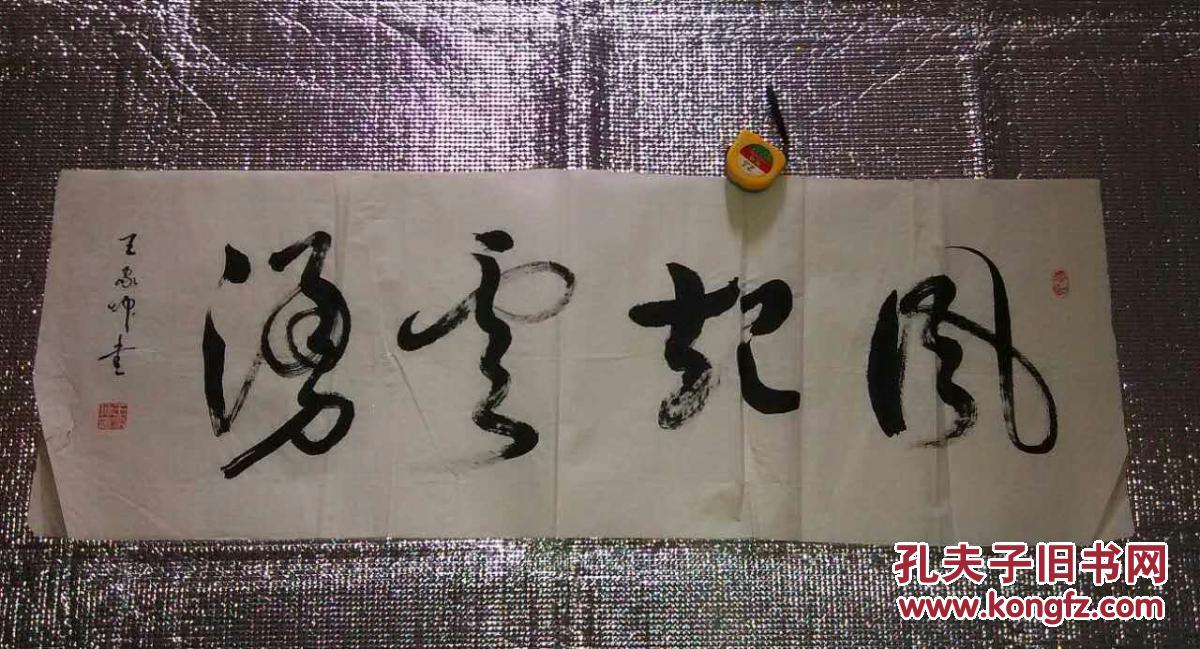 風起雲湧
王家坤書
孔夫子旧书网
www.kongfz.com